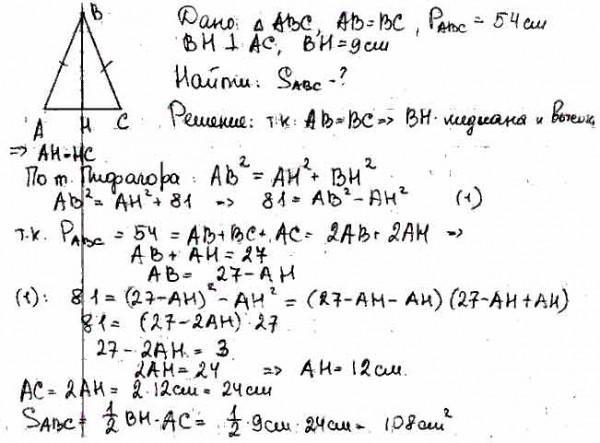 B
A H C
Дано: △ ABC, AB = BC, P_ABC = 54 см
BH ⊥ AC, BH = 9 см
Найти: S_ABC - ?
Решение: т.к. AB = BC => BH - медиана и высота
=> AH = HC
По т. Пифагора: AB² = AH² + BH²
AB² = AH² + 81 => 81 = AB² - AH² (1)
т.к. P_ABC = 54 = AB + BC + AC = 2AB + 2AH =>
AB + AH = 27
AB = 27 - AH
(1): 81 = (27 - AH)² - AH² = (27 - AH - AH) (27 - AH + AH)
81 = (27 - 2AH) · 27
27 - 2AH = 3
2AH = 24 => AH = 12 см.
AC = 2AH = 2 · 12 см = 24 см
S_ABC = 1/2 BH · AC = 1/2 · 9 см · 24 см = 108 см²